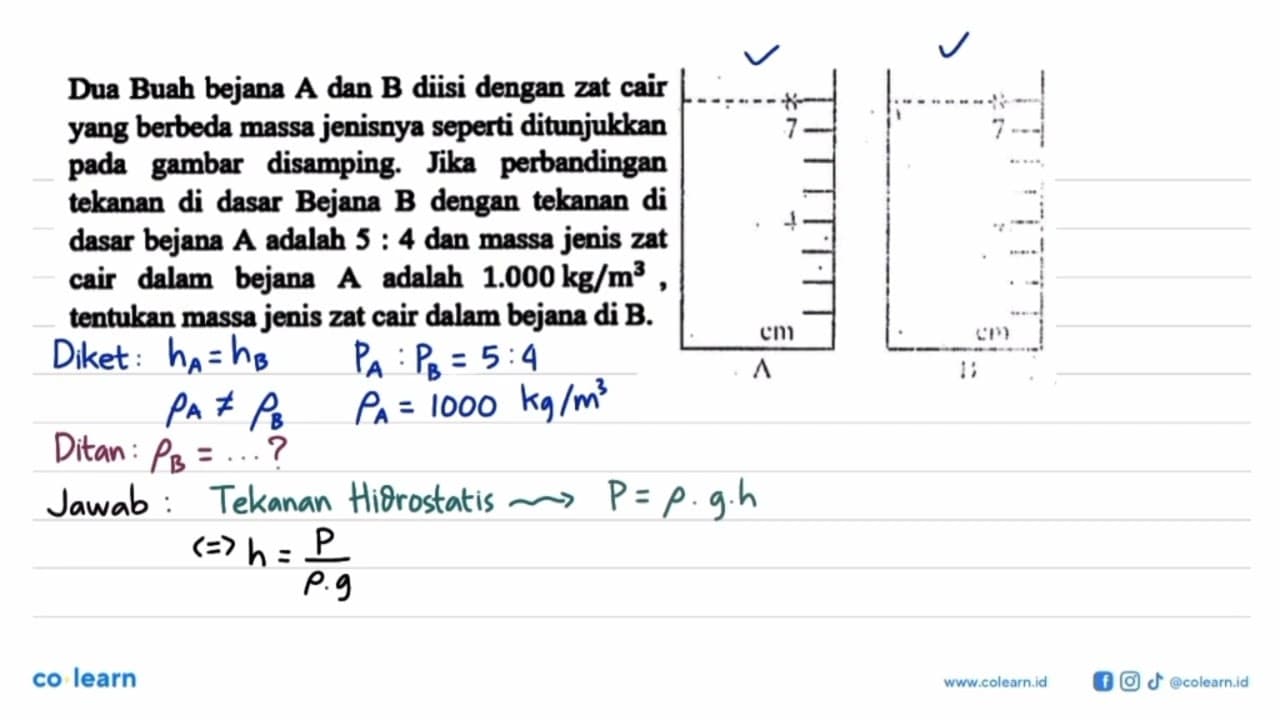 Dua Buah bejana A dan B diisi dengan zat cair
yang berbeda massa jenisnya seperti ditunjukkan
pada gambar disamping. Jika perbandingan
tekanan di dasar Bejana B dengan tekanan di
dasar bejana A adalah 5 : 4 dan massa jenis zat
cair dalam bejana A adalah 1.000 kg/m³ ,
tentukan massa jenis zat cair dalam bejana di B.
7
cm
A
7
cm
Diket: hA = hB PA : PB = 5 : 4
ρA ≠ ρB ρA = 1000 kg/m³
Ditan: ρB = ...?
Jawab : Tekanan Hidrostatis ⟿ P = ρ. g. h
<=> h = P / ρ. g
co learn
www.colearn.id
@colearn.id